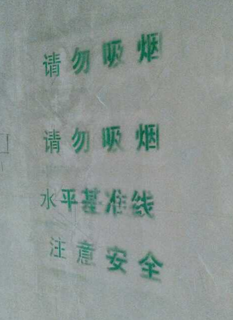 请勿吸烟
请勿吸烟
水平基准线
注意安全